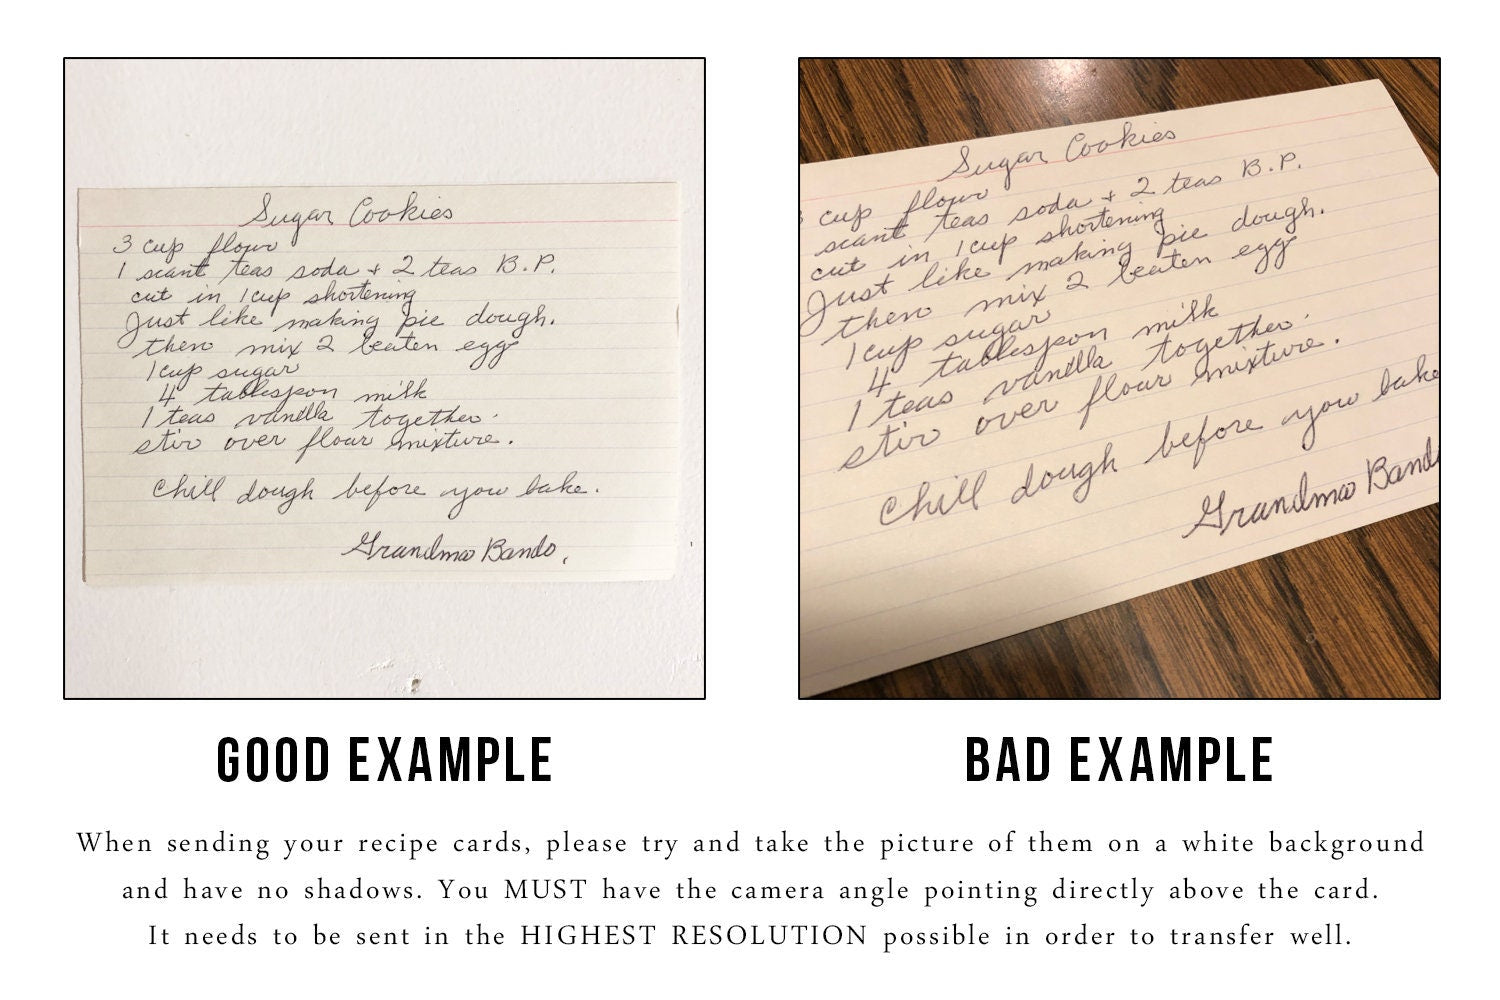 Sugar Cookies
3 cup flour
1 scant teas soda + 2 teas B.P.
cut in 1 cup shortening
Just like making pie dough.
then mix 2 beaten egg
1 cup sugar
4 tablespon milk
1 teas vanilla together.
stir over flour mixture.
Chill dough before you bake.
Grandma Bando,
Sugar Cookies
3 cup flour
scant teas soda + 2 teas B.P.
cut in 1 cup shortening
Just like making pie dough.
then mix 2 beaten egg
1 cup sugar
4 tablespon milk
1 teas vanilla together.
stir over flour mixture.
Chill dough before you bake
Grandma Bando
GOOD EXAMPLE
BAD EXAMPLE
When sending your recipe cards, please try and take the picture of them on a white background
and have no shadows. You MUST have the camera angle pointing directly above the card.
It needs to be sent in the HIGHEST RESOLUTION possible in order to transfer well.